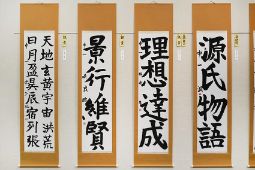 源氏物語
理想達成
景行維賢
天地玄黄宇宙洪荒
日月盈昃辰宿列張